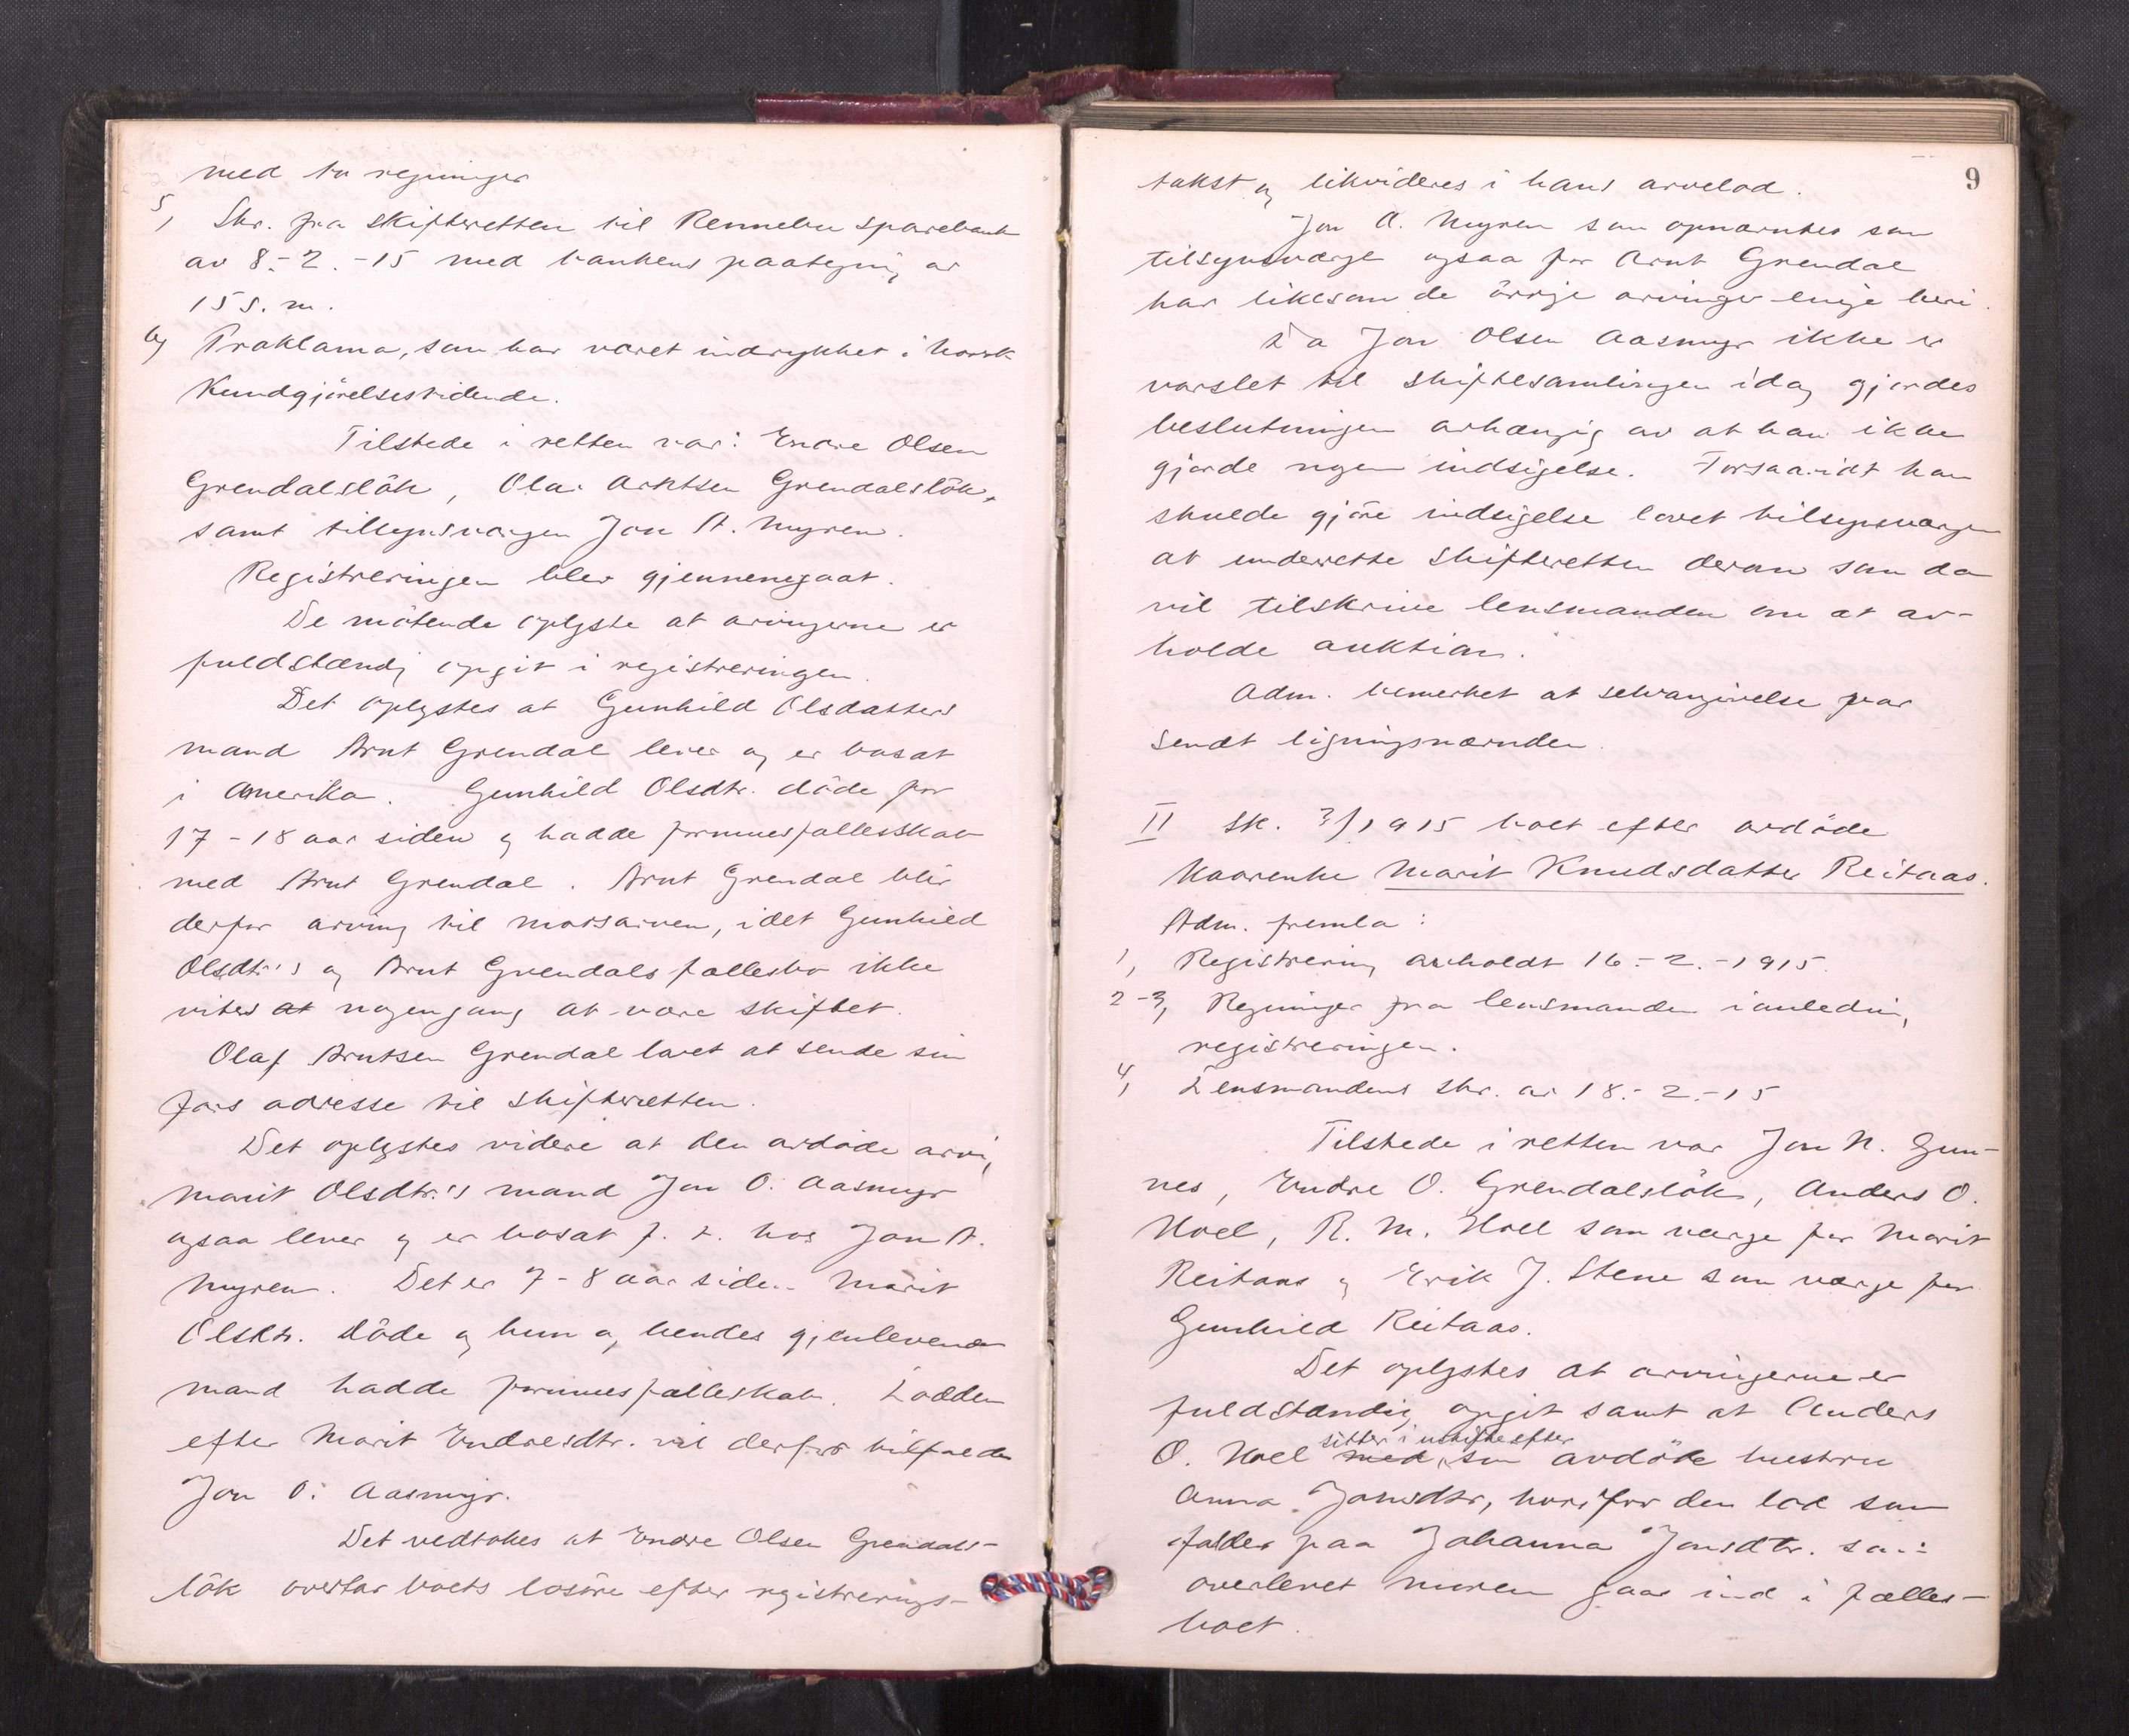 med to regninger
5, Skr. fra skifteretten til Rennebu sparebank
av 8.-2.-15 med bankens paategning av
15 s. m.
6, Proklama, som har været indrykket i Norsk
Kundgjörelsestidende.
Tilstede i retten var: Endre Olsen
Grendalslök, Olaf Arntsen Grendalslök,
samt tilsynsvergen Jon A. Myren.
Registreringen blev gjennemgaat.
De mötende oplyste at arvingerne er
fuldstændig opgit i registreringen.
Det oplystes at Gunhild Olsdatters
mand Arnt Grendal lever og er bosat
i Amerika. Gunhild Olsdtr. döde for
17-18 aar siden og hadde formuesfællesskab
med Arnt Grendal. Arnt Grendal blir
derfor arving til morsarven, idet Gunhild
Olsdtr.'s og Arnt Grendals fællesbo ikke
vites at nogengang at være skiftet.
Olaf Arntsen Grendal lovet at sende sin
fars adresse til skifteretten.
Det oplystes videre at den avdöde arving
Marit Olsdtr.'s mand Jon O. Aasmyr
ogsaa lever og er bosat f. t. hos Jon A.
Myren. Det er 7-8 aar siden Marit
Olsdtr. döde og hun og hendes gjenlevende
mand hadde formuesfælleskab. Lodden
efter Marit Endresdtr. vil derfor tilfalde
Jon O. Aasmyr.
Det vedtokes at Endre Olsen Grendals-
lök overtar boets lösöre efter registrerings-
9
takst og likvideres i hans arvelod.
Jon A. Myren som opnævntes som
tilsynsverge ogsaa for Arnt Grendal
har likesom de övrige arvinger enige heri.
Da Jon Olsen Aasmyr ikke er
varslet til skiftesamlingen idag gjordes
beslutningen avhængig av at han ikke
gjorde nogen indsigelse. Forsaavidt han
skulde gjöre indsigelse lovet tilsynsvergen
at underrette skifteretten derom som da
vil tilskrive lensmanden om at av-
holde auktion.
Adm. bemerket at selvangivelse var
sendt ligningsnævnden.
II Sk. 3/1915 boet efter avdöde
Kaarenke Marit Knudsdatter Reitaas.
Adm. fremla:
1, Registrering avholdt 16.-2.-1915.
2-3, Regninger fra lensmanden i anledning
registreringen.
4, Lensmandens skr. av 18.-2.-15
Tilstede i retten var Jon N. Gun-
nes, Endre O. Grendalslök, Anders O.
Hoel, R. M. Hoel som verge for Marit
Reitaas og Erik J. Stene som verge for
Gunhild Reitaas.
Det oplystes at arvingerne er
fuldstændig opgit samt at Anders
sitter i uskifte efter
O. Hoel med sin avdöde hustru
Anna Jonsdtr., hvorfor den lod som
falder paa Johanna Jonsdtr. som
overlevet moren gaar ind i fælles-
boet.